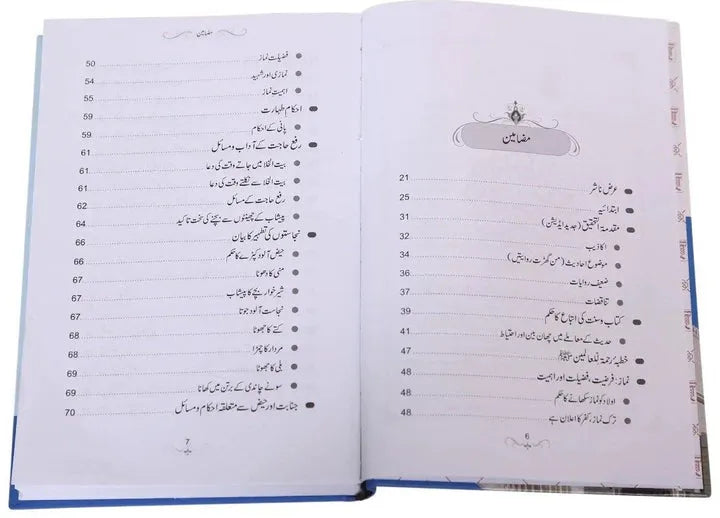 مضامین
عرض ناشر 21
ابتدائیہ 25
مقدمۃ التحقیق (جدید ایڈیشن) 31
اکاذیب 32
موضوع احادیث (من گھڑت روایتیں) 34
ضعیف روایات 36
تناقضات 37
کتاب وسنت کی اتباع کا حکم 39
حدیث کے معاملے میں چھان بین اور احتیاط 41
خطبۂ رحمۃ للعالمین ﷺ 47
نماز: فرضیت، فضیلت اور اہمیت 47
اولاد کو نماز سکھانے کا حکم 48
ترک نماز، کفر کا اعلان ہے 48
6
مضامین
فضیلت نماز 50
نمازی اور شہید 54
اہمیت نماز 55
احکام طہارت 59
پانی کے احکام 59
رفع حاجت کے آداب ومسائل 61
بیت الخلا میں جاتے وقت کی دعا 61
بیت الخلا سے نکلتے وقت کی دعا 61
رفع حاجت کے مسائل 62
پیشاب کے چھینٹوں سے بچنے کی سخت تاکید 65
نجاستوں کی تطہیر کا بیان 66
حیض آلود کپڑے کا حکم 66
منی کا دھونا 67
شیر خوار بچے کا پیشاب 67
نجاست آلود جوتا 68
کتے کا جھوٹا 68
مردار کا چمڑا 68
بلی کا جھوٹا 69
سونے چاندی کے برتن میں کھانا 69
جنابت اور حیض سے متعلقہ احکام ومسائل 70
7